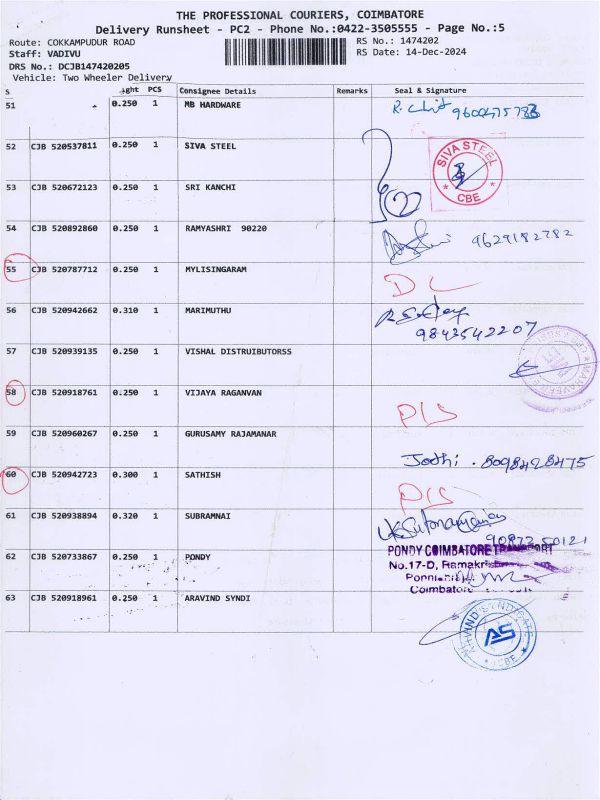 THE PROFESSIONAL COURIERS, COIMBATORE
Delivery Runsheet - PC2 - Phone No.:0422-3505555 - Page No.:5
Route: COKKAMPUDUR ROAD RS No.: 1474202
Staff: VADIVU RS Date: 14-Dec-2024
DRS No.: DCJB147420205
Vehicle: Two Wheeler Delivery
S ight PCS Consignee Details Remarks Seal & Signature
51 0.250 1 MB HARDWARE
52 CJB 520537811 0.250 1 SIVA STEEL SIVA STEEL CBE
53 CJB 520672123 0.250 1 SRI KANCHI
54 CJB 520892860 0.250 1 RAMYASHRI 90220 9629182782
55 CJB 520787712 0.250 1 MYLISINGARAM D L
56 CJB 520942662 0.310 1 MARIMUTHU 9843542207
57 CJB 520939135 0.250 1 VISHAL DISTRUIBUTORSS
58 CJB 520918761 0.250 1 VIJAYA RAGANVAN PIS
59 CJB 520960267 0.250 1 GURUSAMY RAJAMANAR Jothi . 8098428475
60 CJB 520942723 0.300 1 SATHISH PIS
61 CJB 520938894 0.320 1 SUBRAMNAI
62 CJB 520733867 0.250 1 PONDY PONDY COIMBATORE TRANSPORT
No.17-D,
Coimbatore
63 CJB 520918961 0.250 1 ARAVIND SYNDI AS CBE